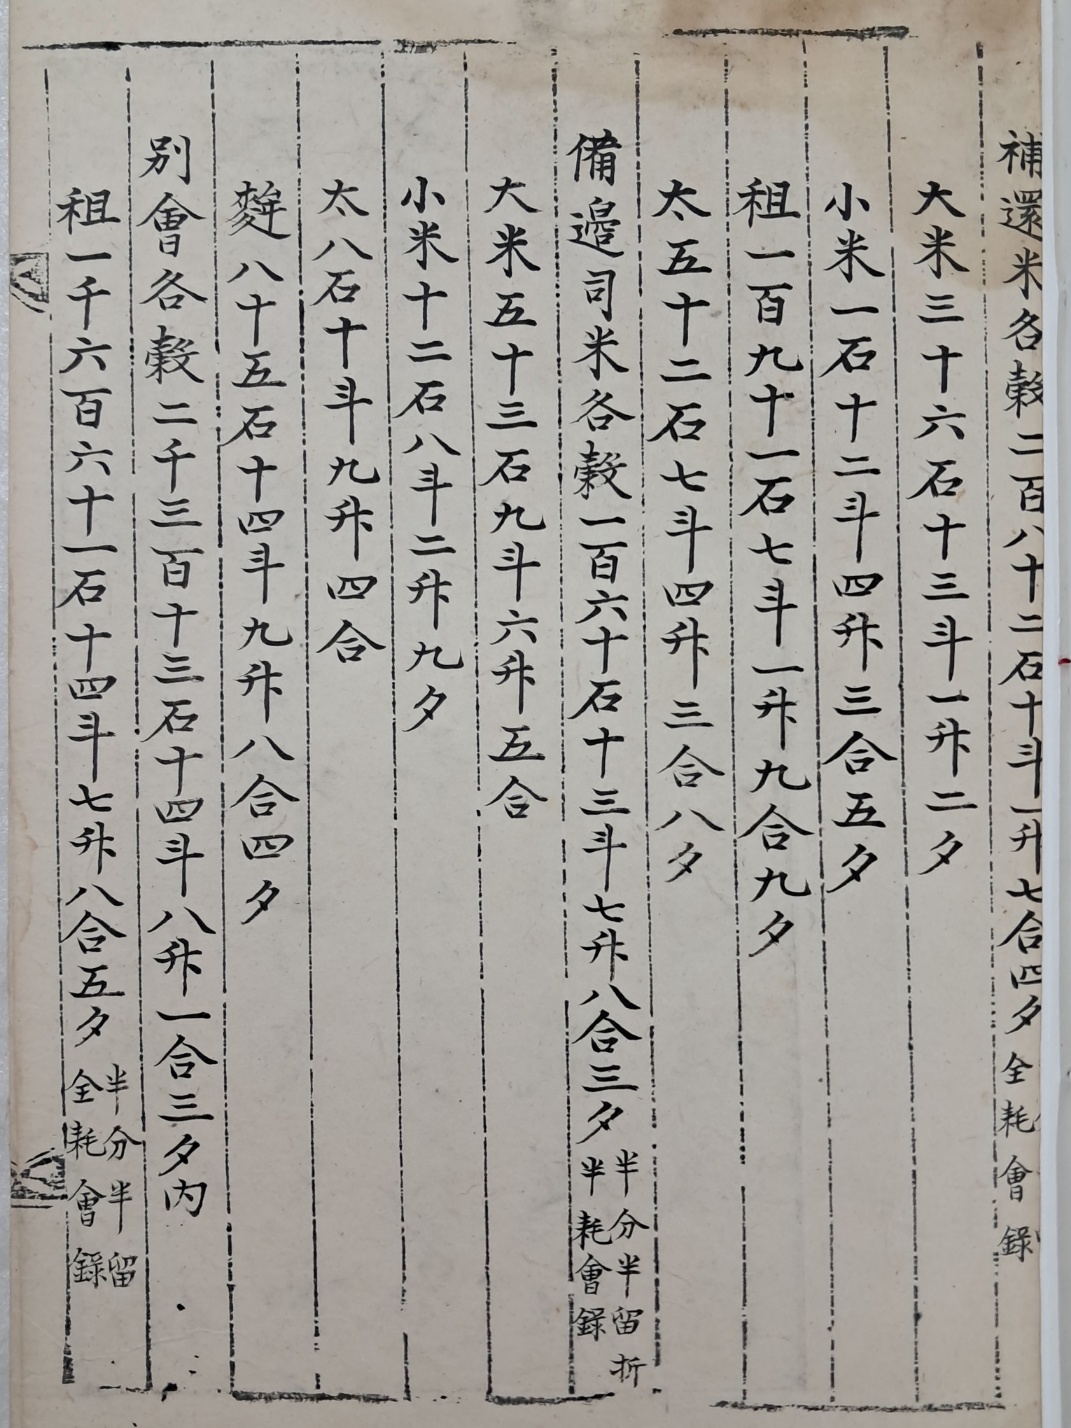 補還米各穀二百八十二石十斗一升七合四夕 全耗會錄
大米三十六石十三斗一升二夕
小米一石十二斗四升三合五夕
租一百九十一石七斗一升九合九夕
太五十二石七斗四升三合八夕
備邊司米各穀一百六十石十三斗七升八合三夕 半分半留折
半耗會錄
大米五十三石九斗六升五合
小米十二石八斗二升九夕
太八石十斗九升四合
麰八十五石十四斗九升八合四夕
別會各穀二千三百十三石十四斗八升一合三夕內
租一千六百六十一石十四斗七升八合五夕 半分半留
全耗會錄